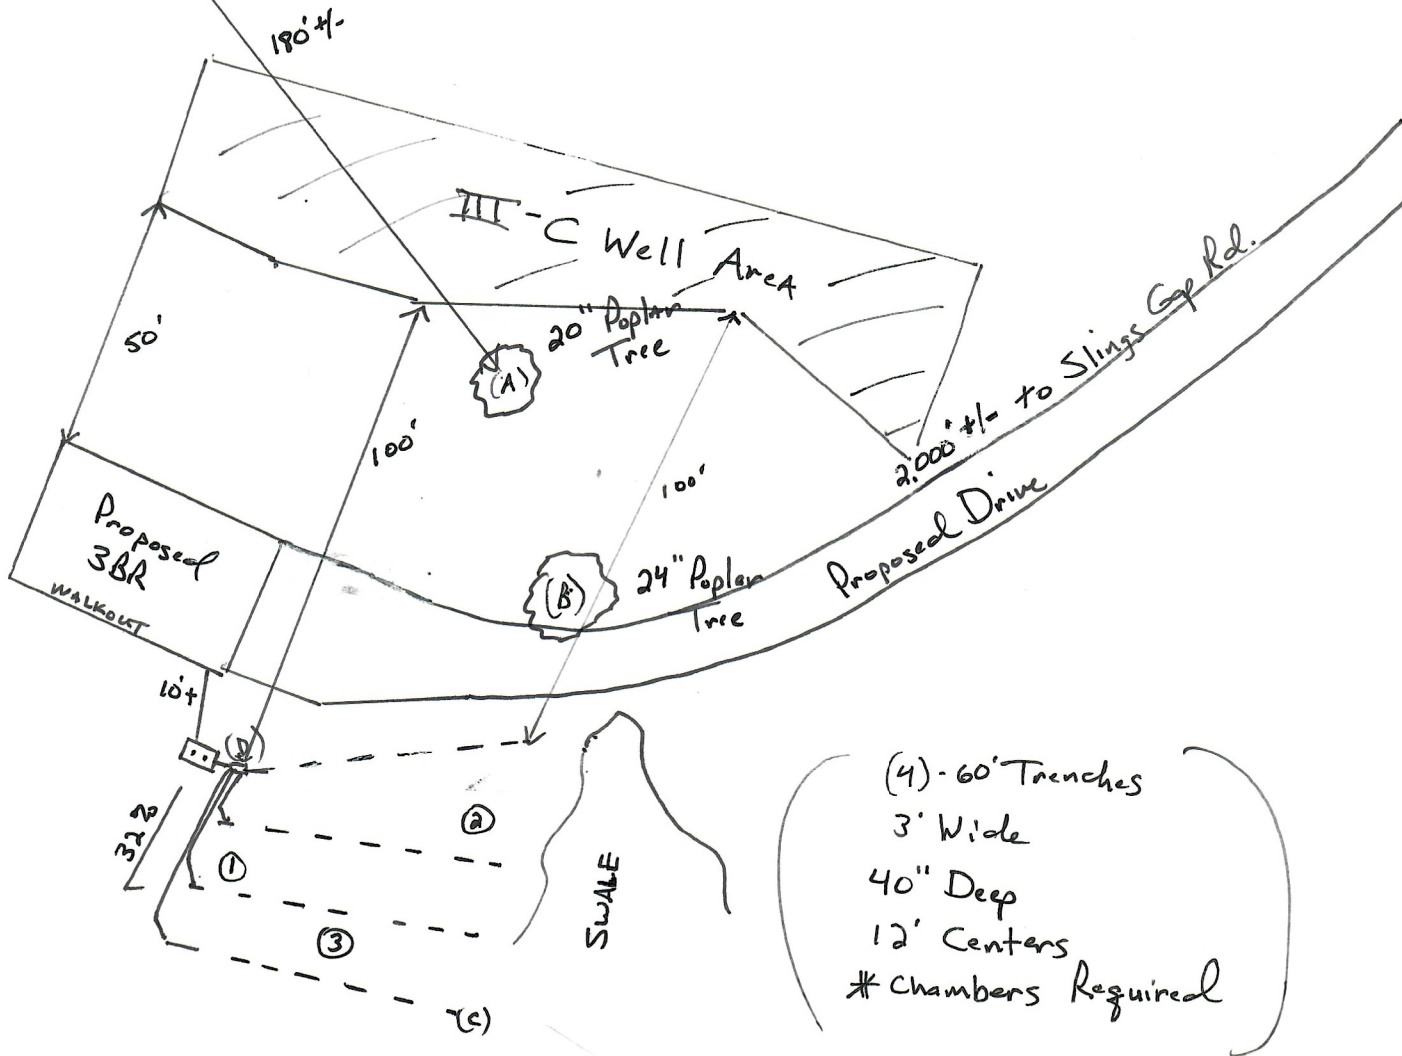 180' +/-
III - C Well Area
20" Poplar
Tree
(A)
50'
100'
100'
2,000' +/- to Slings Gap Rd.
Proposed Drive
Proposed
3BR
WALKOUT
(B)
24" Poplar
Tree
10'+
(D)
32%
②
①
③
(C)
SWALE
(4) - 60' Trenches
3' Wide
40" Deep
12' Centers
* Chambers Required